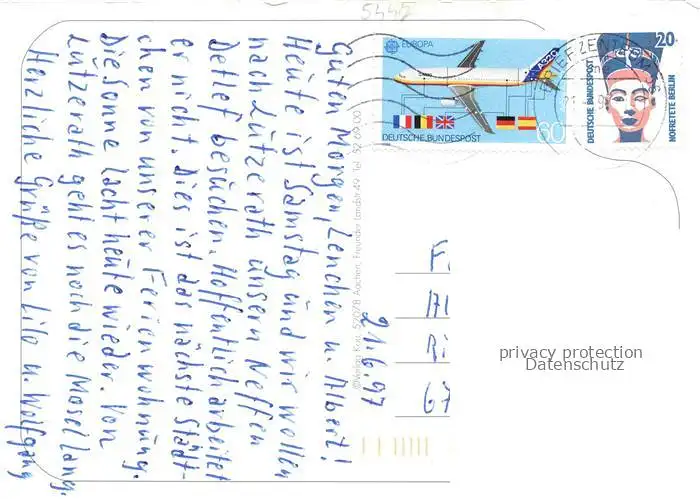 5442
Guten Morgen, Lenchen u. Albert!
Heute ist Samstag und wir wollen
nach Lützerath unsern Neffen
Detlef besuchen. Hoffentlich arbeitet
er nicht. Dies ist das nächste Städt-
chen von unserer Ferienwohnung.
Die Sonne lacht heute wieder. Von
Lützerath geht es noch die Mosel lang.
Herzliche Grüße von Lilo u. Wolfgang
21.6.97
©Verlag 52078 Aachen, Freunder Landstr. 49 Tel. 52 09 00
EUROPA
A320
DEUTSCHE BUNDESPOST
60
20
DEUTSCHE BUNDESPOST
NOFRETETE BERLIN
BRIEFZENTRUM
F
Al
Ri
67
privacy protection
Datenschutz